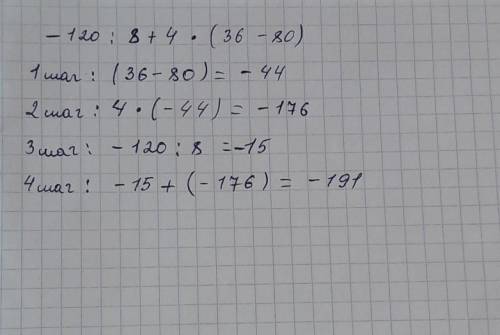 -120 : 8 + 4 · (36 - 80)
1 шаг : (36 - 80) = - 44
2 шаг : 4 · (-44) = -176
3 шаг : - 120 : 8 = -15
4 шаг : -15 + (- 176) = - 191